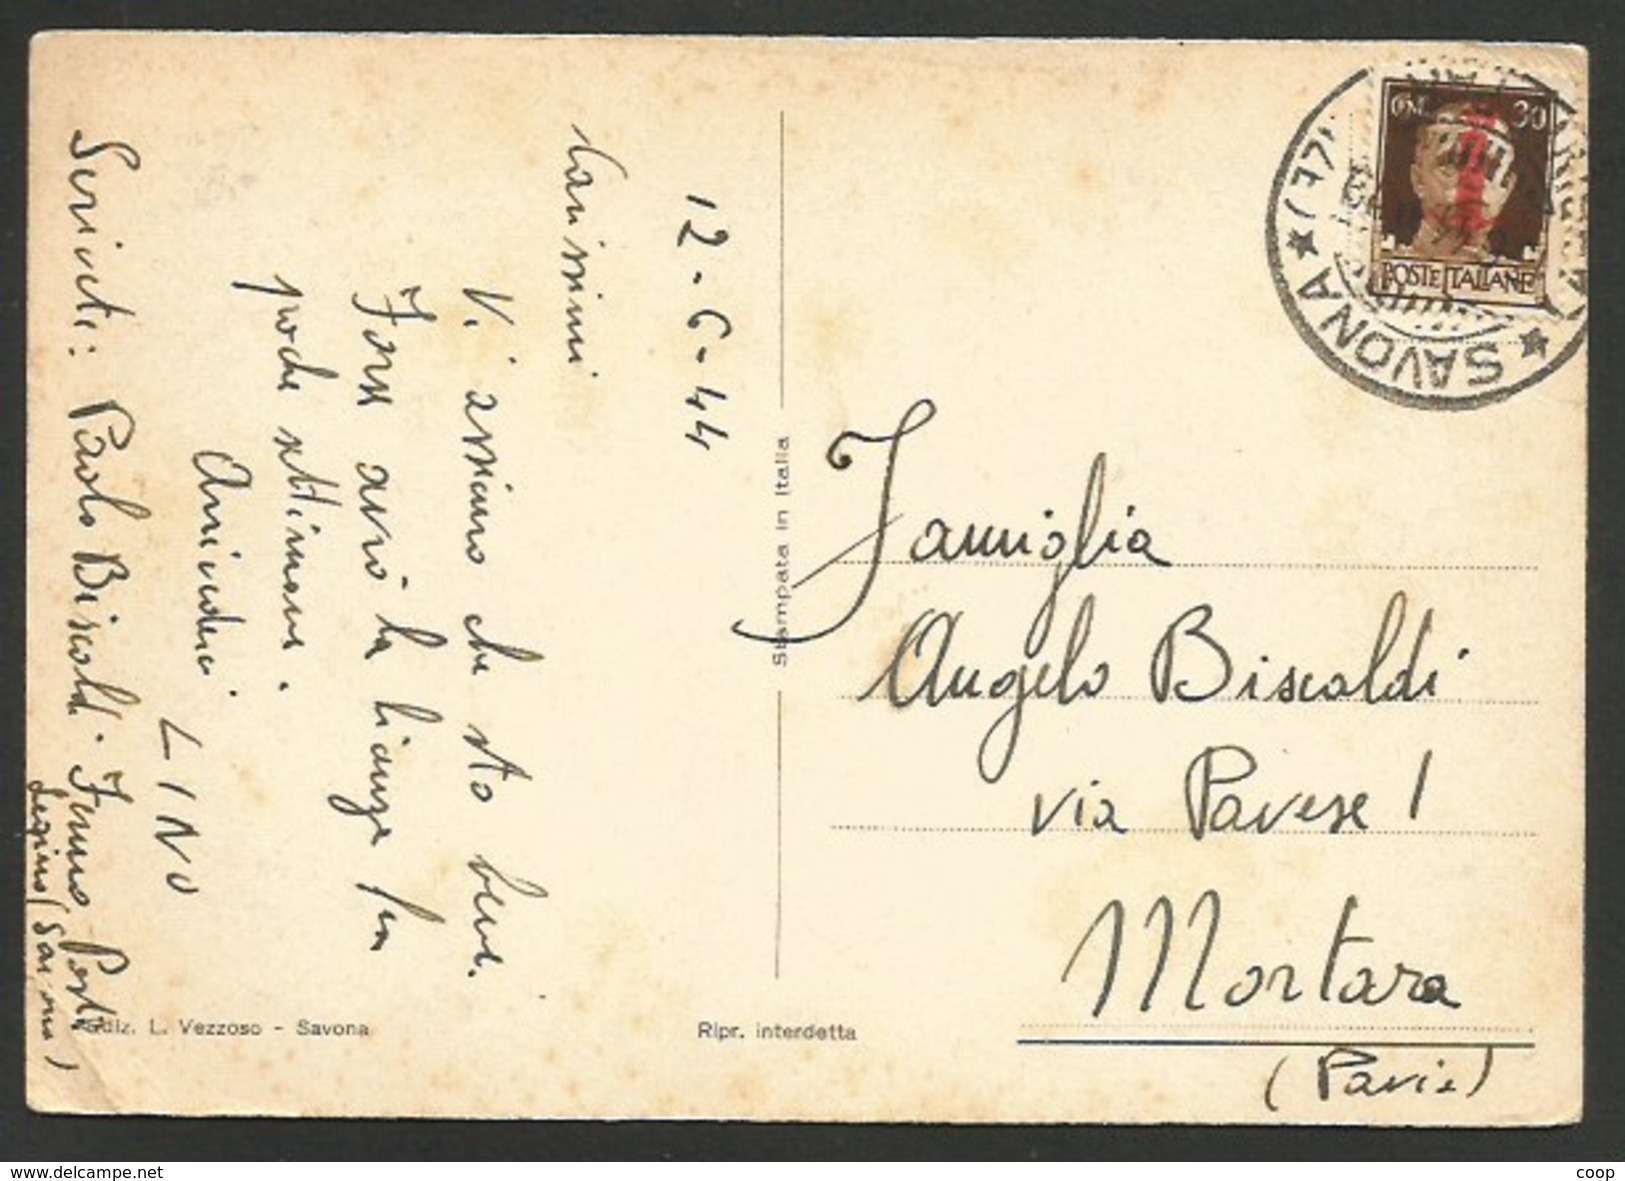 12-6-44
Carissimi
Vi assicuro che sto bene.
Forse avrò la licenza fra
poche settimane.
Arrivederci
LINO
Scrivete: Paolo Biscaldi. Fermo Posta
Legino (Savona)
Ediz. L. Vezzoso - Savona
Stampata in Italia
Ripr. interdetta
CENT. 30
POSTE ITALIANE
★ SAVONA ★
Famiglia
Angelo Biscaldi
via Pavese 1
Mortara
(Pavia)
www.delcampe.net
coop